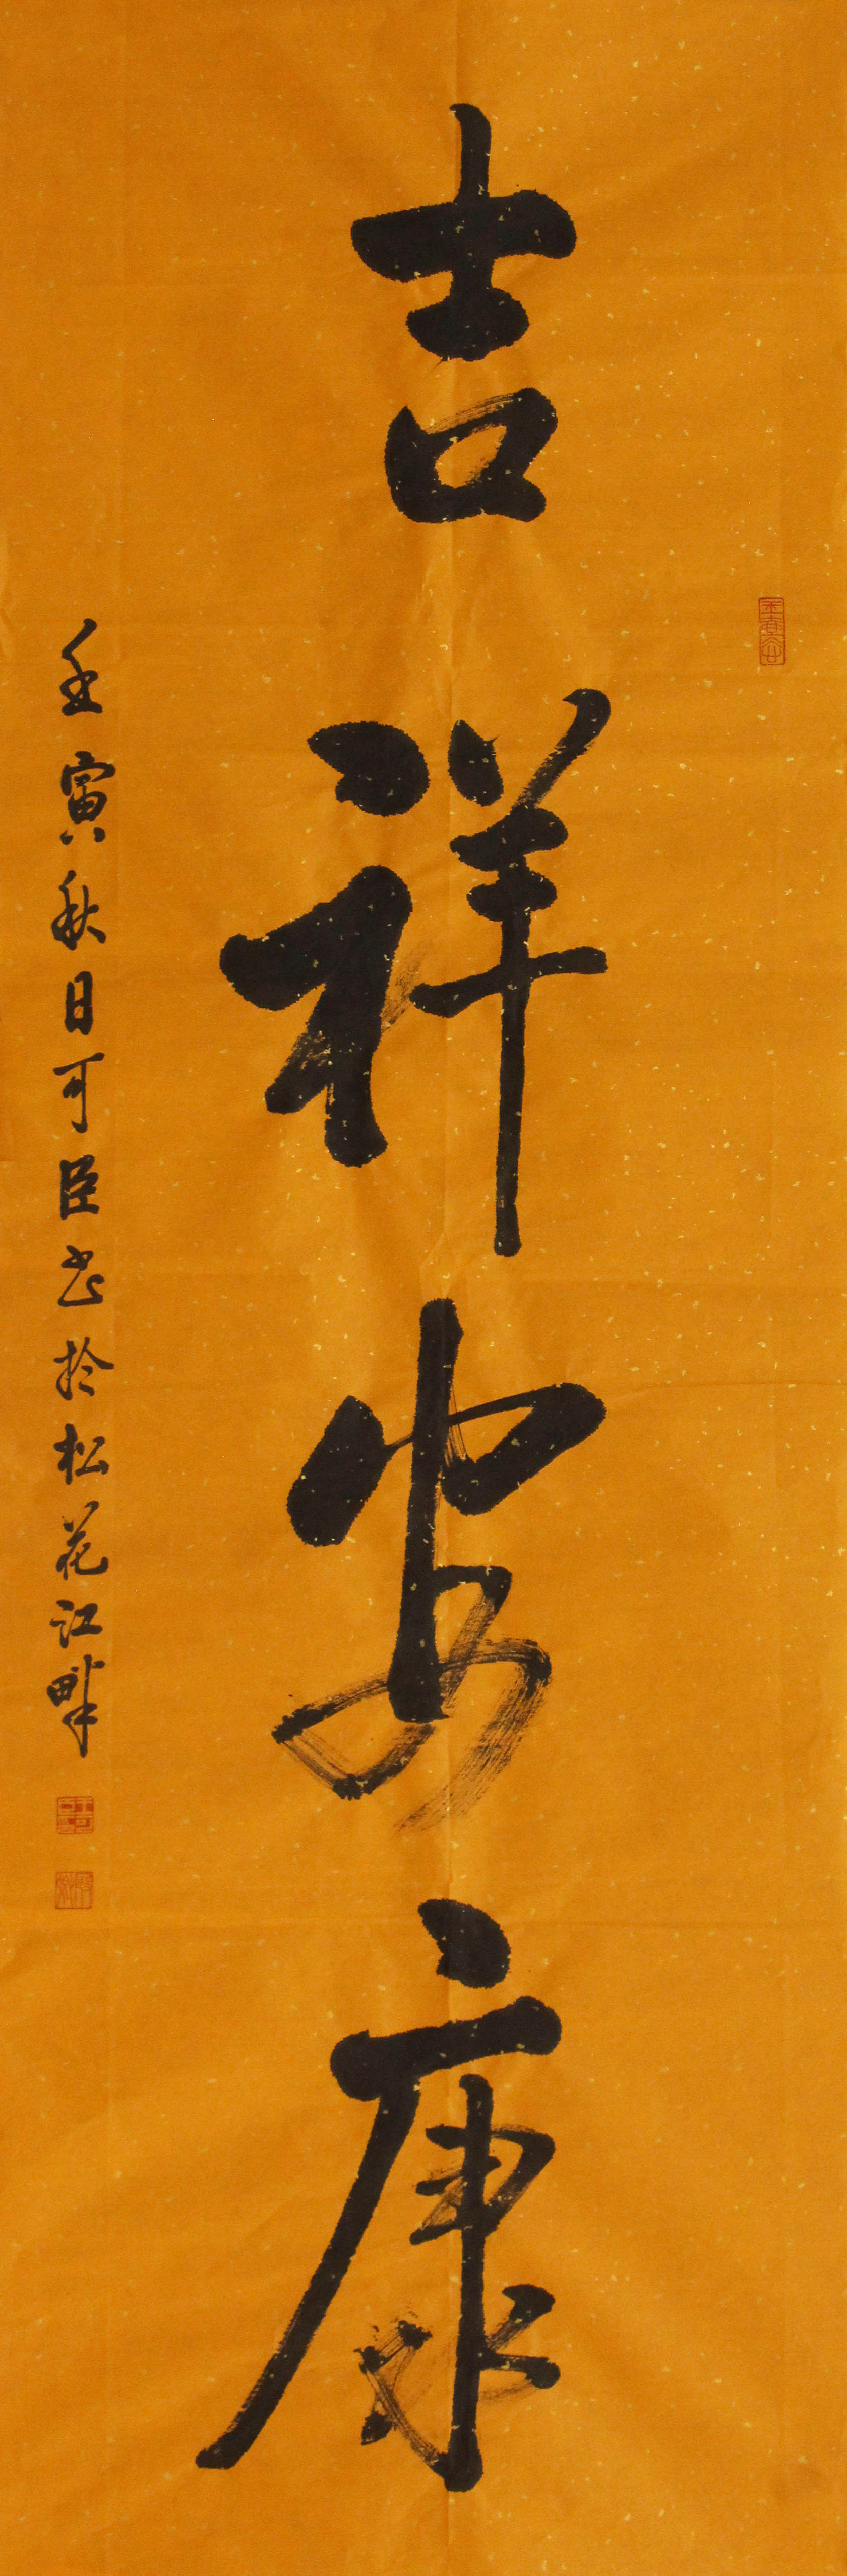 吉祥安康
壬寅秋日可臣书於松花江畔